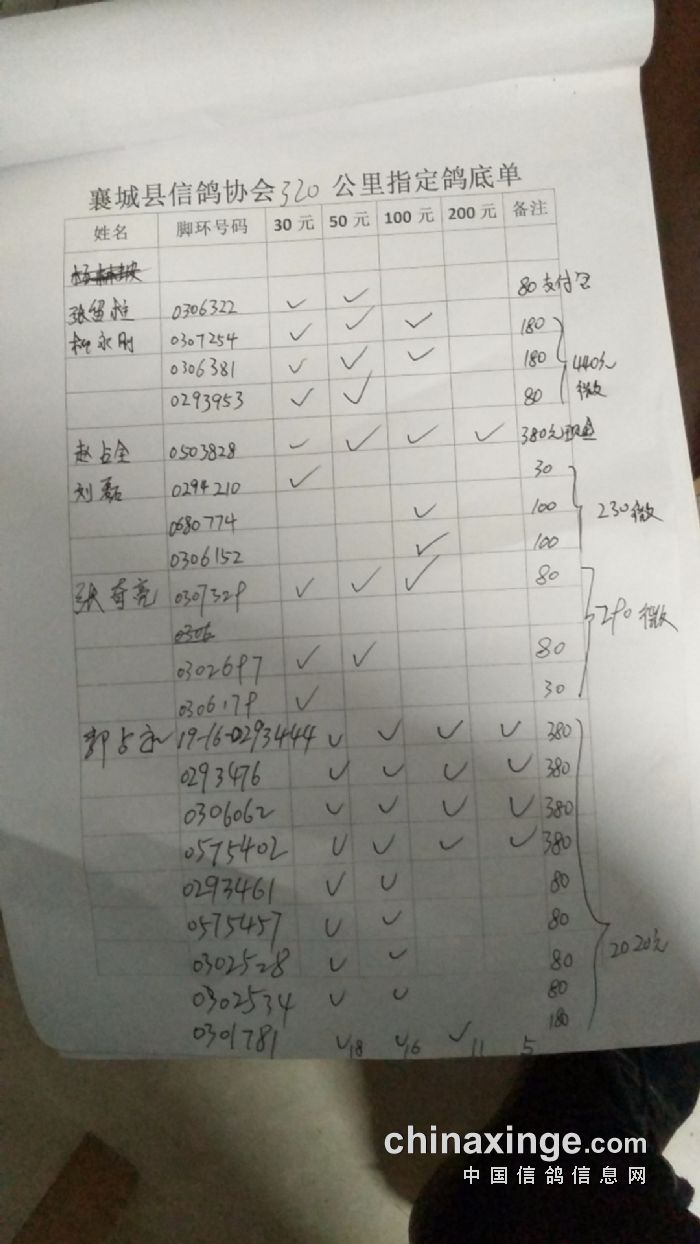 襄城县信鸽协会320公里指定鸽底单
姓名 脚环号码 30元 50元 100元 200元 备注
张留柱 0306322 ✓ ✓ 80支付宝
柳永刚 0307254 ✓ ✓ ✓ 180
0306381 ✓ ✓ ✓ 180 440元微
0293953 ✓ ✓ 80
赵占全 0503828 ✓ ✓ ✓ ✓ 380元现金
刘磊 0294210 ✓ 30
0680774 ✓ 100 230微
0306152 ✓ 100
张奇亮 0307329 ✓ ✓ ✓ 80
0306 290微
0302697 ✓ ✓ 80
0306179 ✓ 30
郭占 19-16-0293444 ✓ ✓ ✓ ✓ 380
0293476 ✓ ✓ ✓ ✓ 380
0306062 ✓ ✓ ✓ ✓ 380
0575402 ✓ ✓ ✓ ✓ 380
0293461 ✓ ✓ 80
0575457 ✓ ✓ 80
0302528 ✓ ✓ 80 2020元
0302534 ✓ ✓ 80
0301781 ✓ ✓ ✓ 180
18 16 11 5
chinaxinge.com
中国信鸽信息网